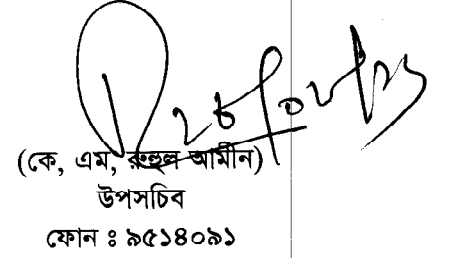 (কে, এম, রুহুল আমীন)
উপসচিব
ফোন ঃ ৯৫১৪০৯১